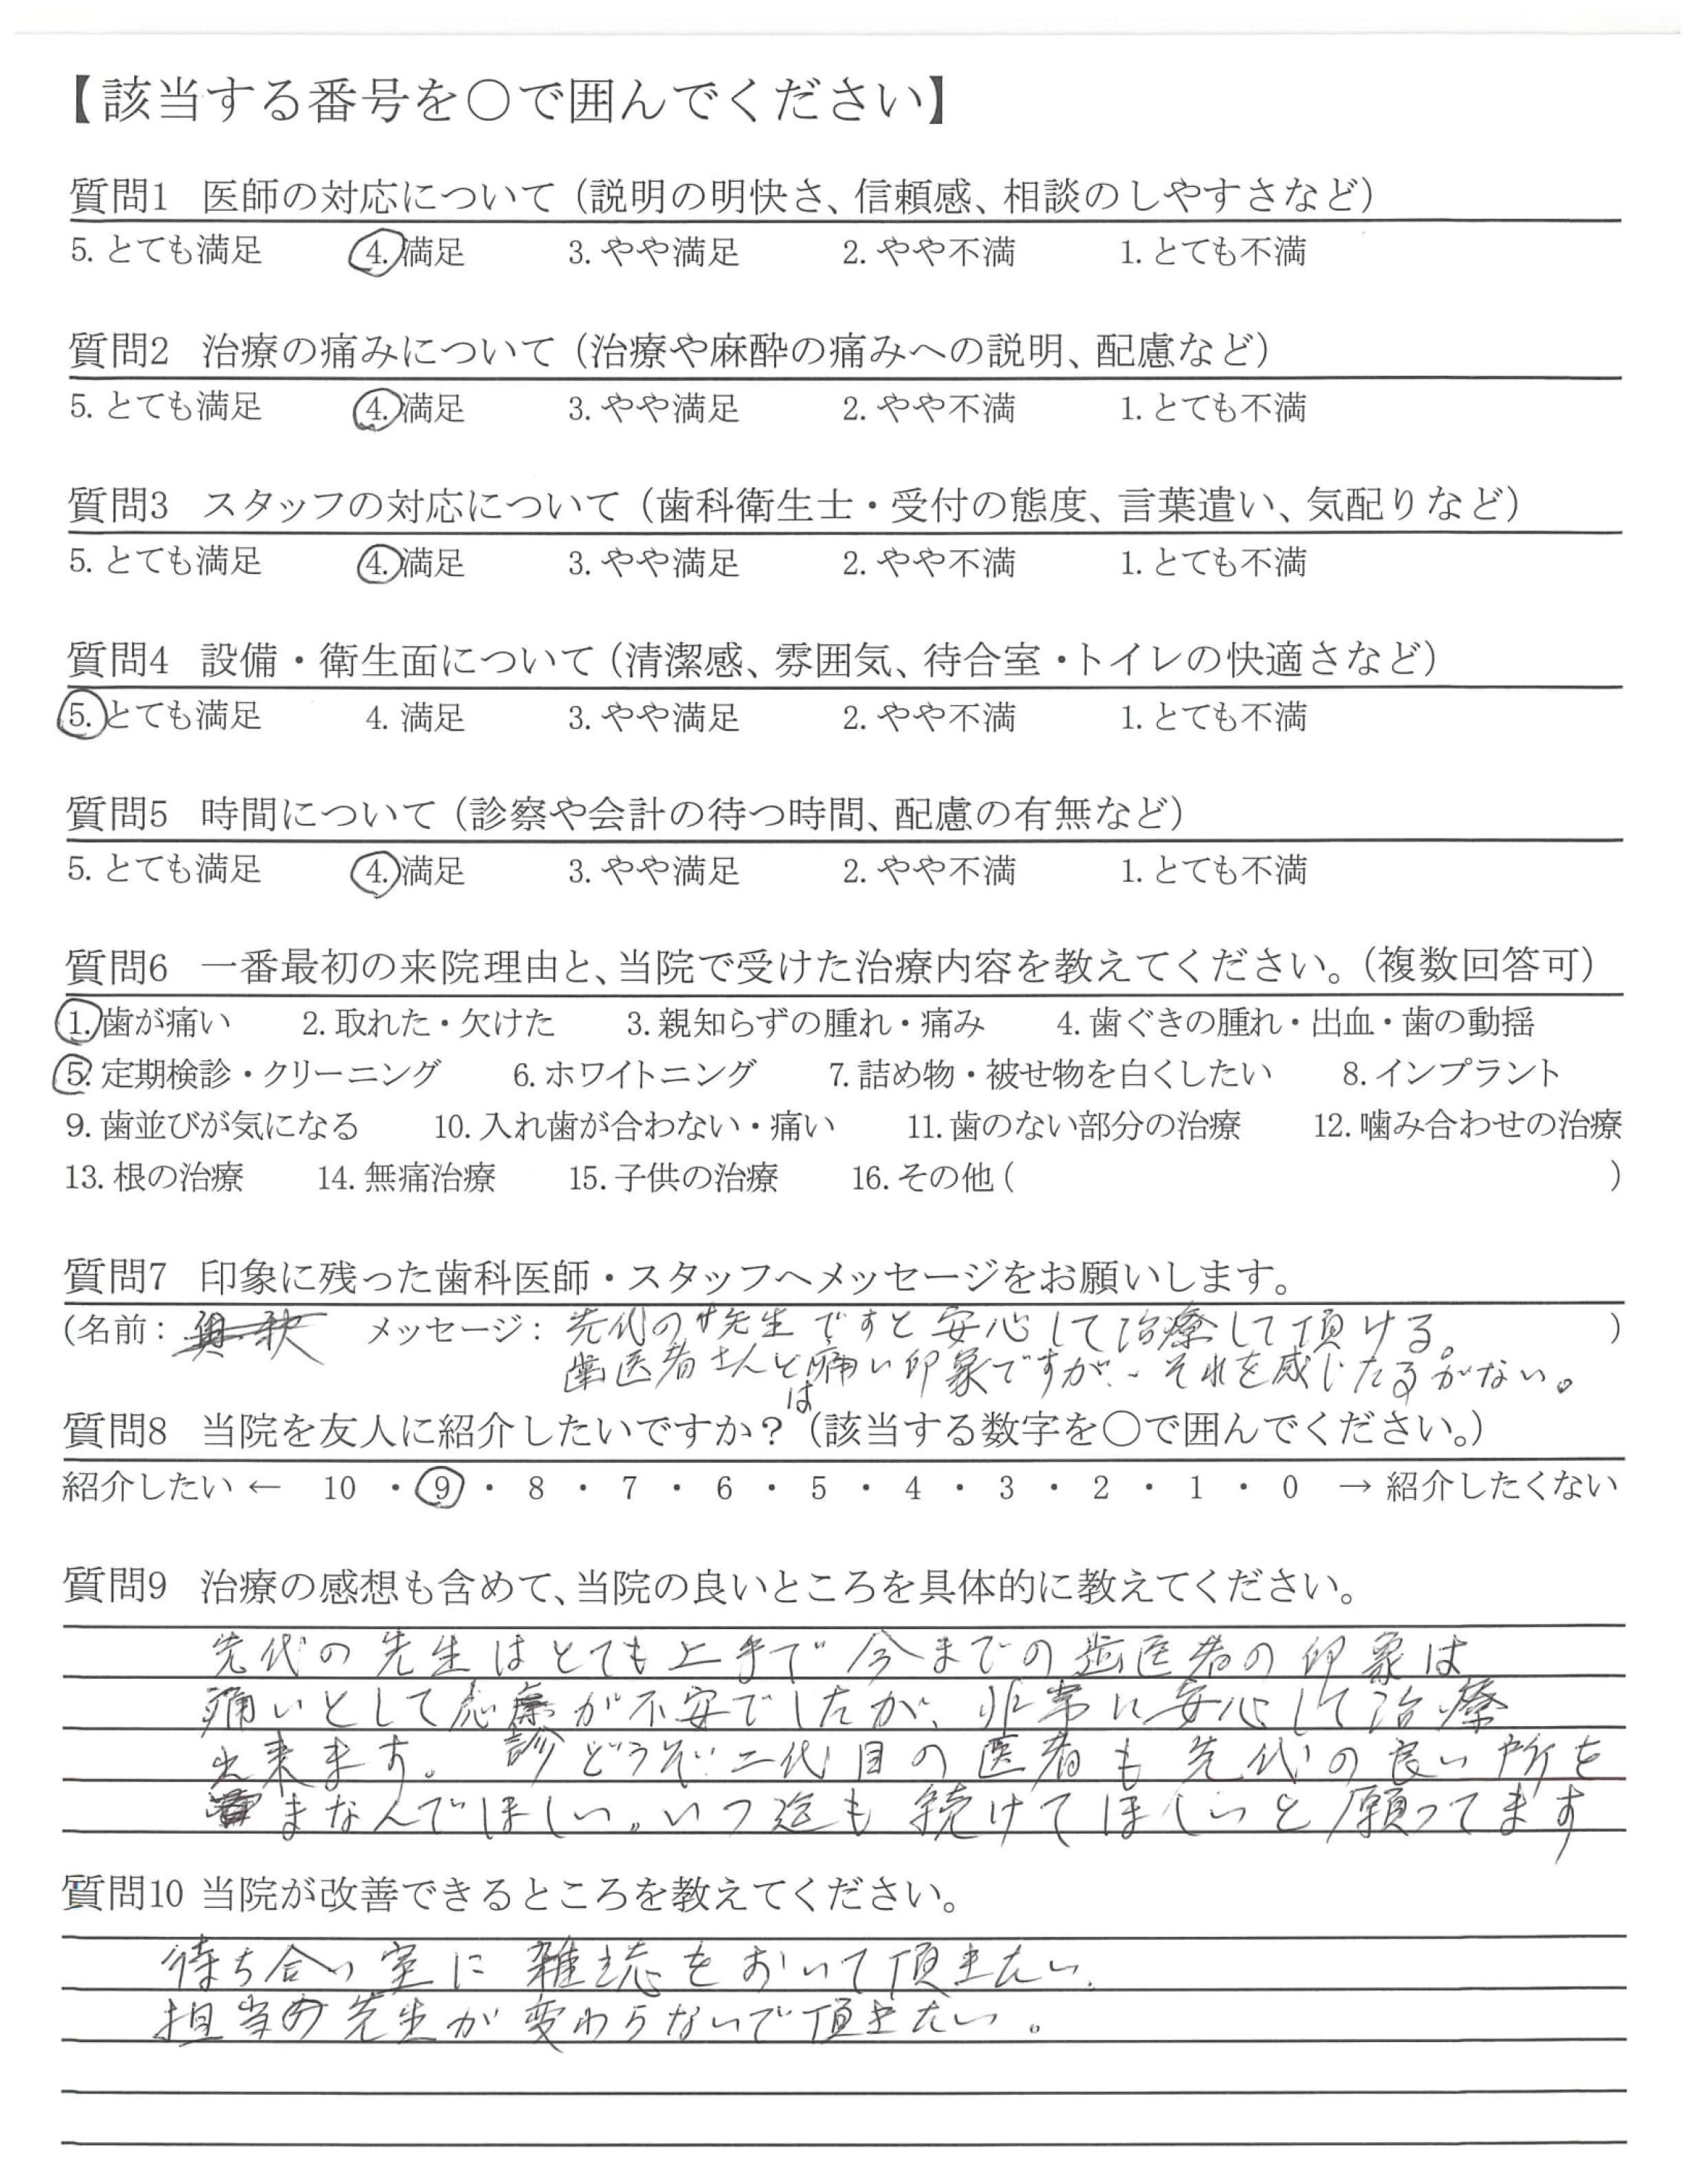 【該当する番号を〇で囲んでください】
質問1 医師の対応について（説明の明快さ、信頼感、相談のしやすさなど）
5. とても満足 4. 満足 3. やや満足 2. やや不満 1. とても不満
質問2 治療の痛みについて（治療や麻酔の痛みへの説明、配慮など）
5. とても満足 4. 満足 3. やや満足 2. やや不満 1. とても不満
質問3 スタッフの対応について（歯科衛生士・受付の態度、言葉遣い、気配りなど）
5. とても満足 4. 満足 3. やや満足 2. やや不満 1. とても不満
質問4 設備・衛生面について（清潔感、雰囲気、待合室・トイレの快適さなど）
5. とても満足 4. 満足 3. やや満足 2. やや不満 1. とても不満
質問5 時間について（診察や会計の待つ時間、配慮の有無など）
5. とても満足 4. 満足 3. やや満足 2. やや不満 1. とても不満
質問6 一番最初の来院理由と、当院で受けた治療内容を教えてください。（複数回答可）
1. 歯が痛い 2. 取れた・欠けた 3. 親知らずの腫れ・痛み 4. 歯ぐきの腫れ・出血・歯の動揺
5. 定期検診・クリーニング 6. ホワイトニング 7. 詰め物・被せ物を白くしたい 8. インプラント
9. 歯並びが気になる 10. 入れ歯が合わない・痛い 11. 歯のない部分の治療 12. 噛み合わせの治療
13. 根の治療 14. 無痛治療 15. 子供の治療 16. その他（ ）
質問7 印象に残った歯科医師・スタッフへメッセージをお願いします。
（名前： メッセージ： 先代の先生ですと安心して治療して頂ける。 ）
歯医者さんは痛い印象ですが、それを感じたがない。
質問8 当院を友人に紹介したいですか？（該当する数字を〇で囲んでください。）
紹介したい ← 10 ・ 9 ・ 8 ・ 7 ・ 6 ・ 5 ・ 4 ・ 3 ・ 2 ・ 1 ・ 0 → 紹介したくない
質問9 治療の感想も含めて、当院の良いところを具体的に教えてください。
先代の先生はとても上手で今までの歯医者の印象は
痛いとしてが不安でしたが、非常に安心して治療
出来ます。診どうぞ二代目の医者も先代の良い所を
まなんでほしい。いつ迄も続けてほしいと願ってます
質問10 当院が改善できるところを教えてください。
待ち合い室に雑誌をおいて頂きたい。
担当の先生が変わらないで頂きたい。